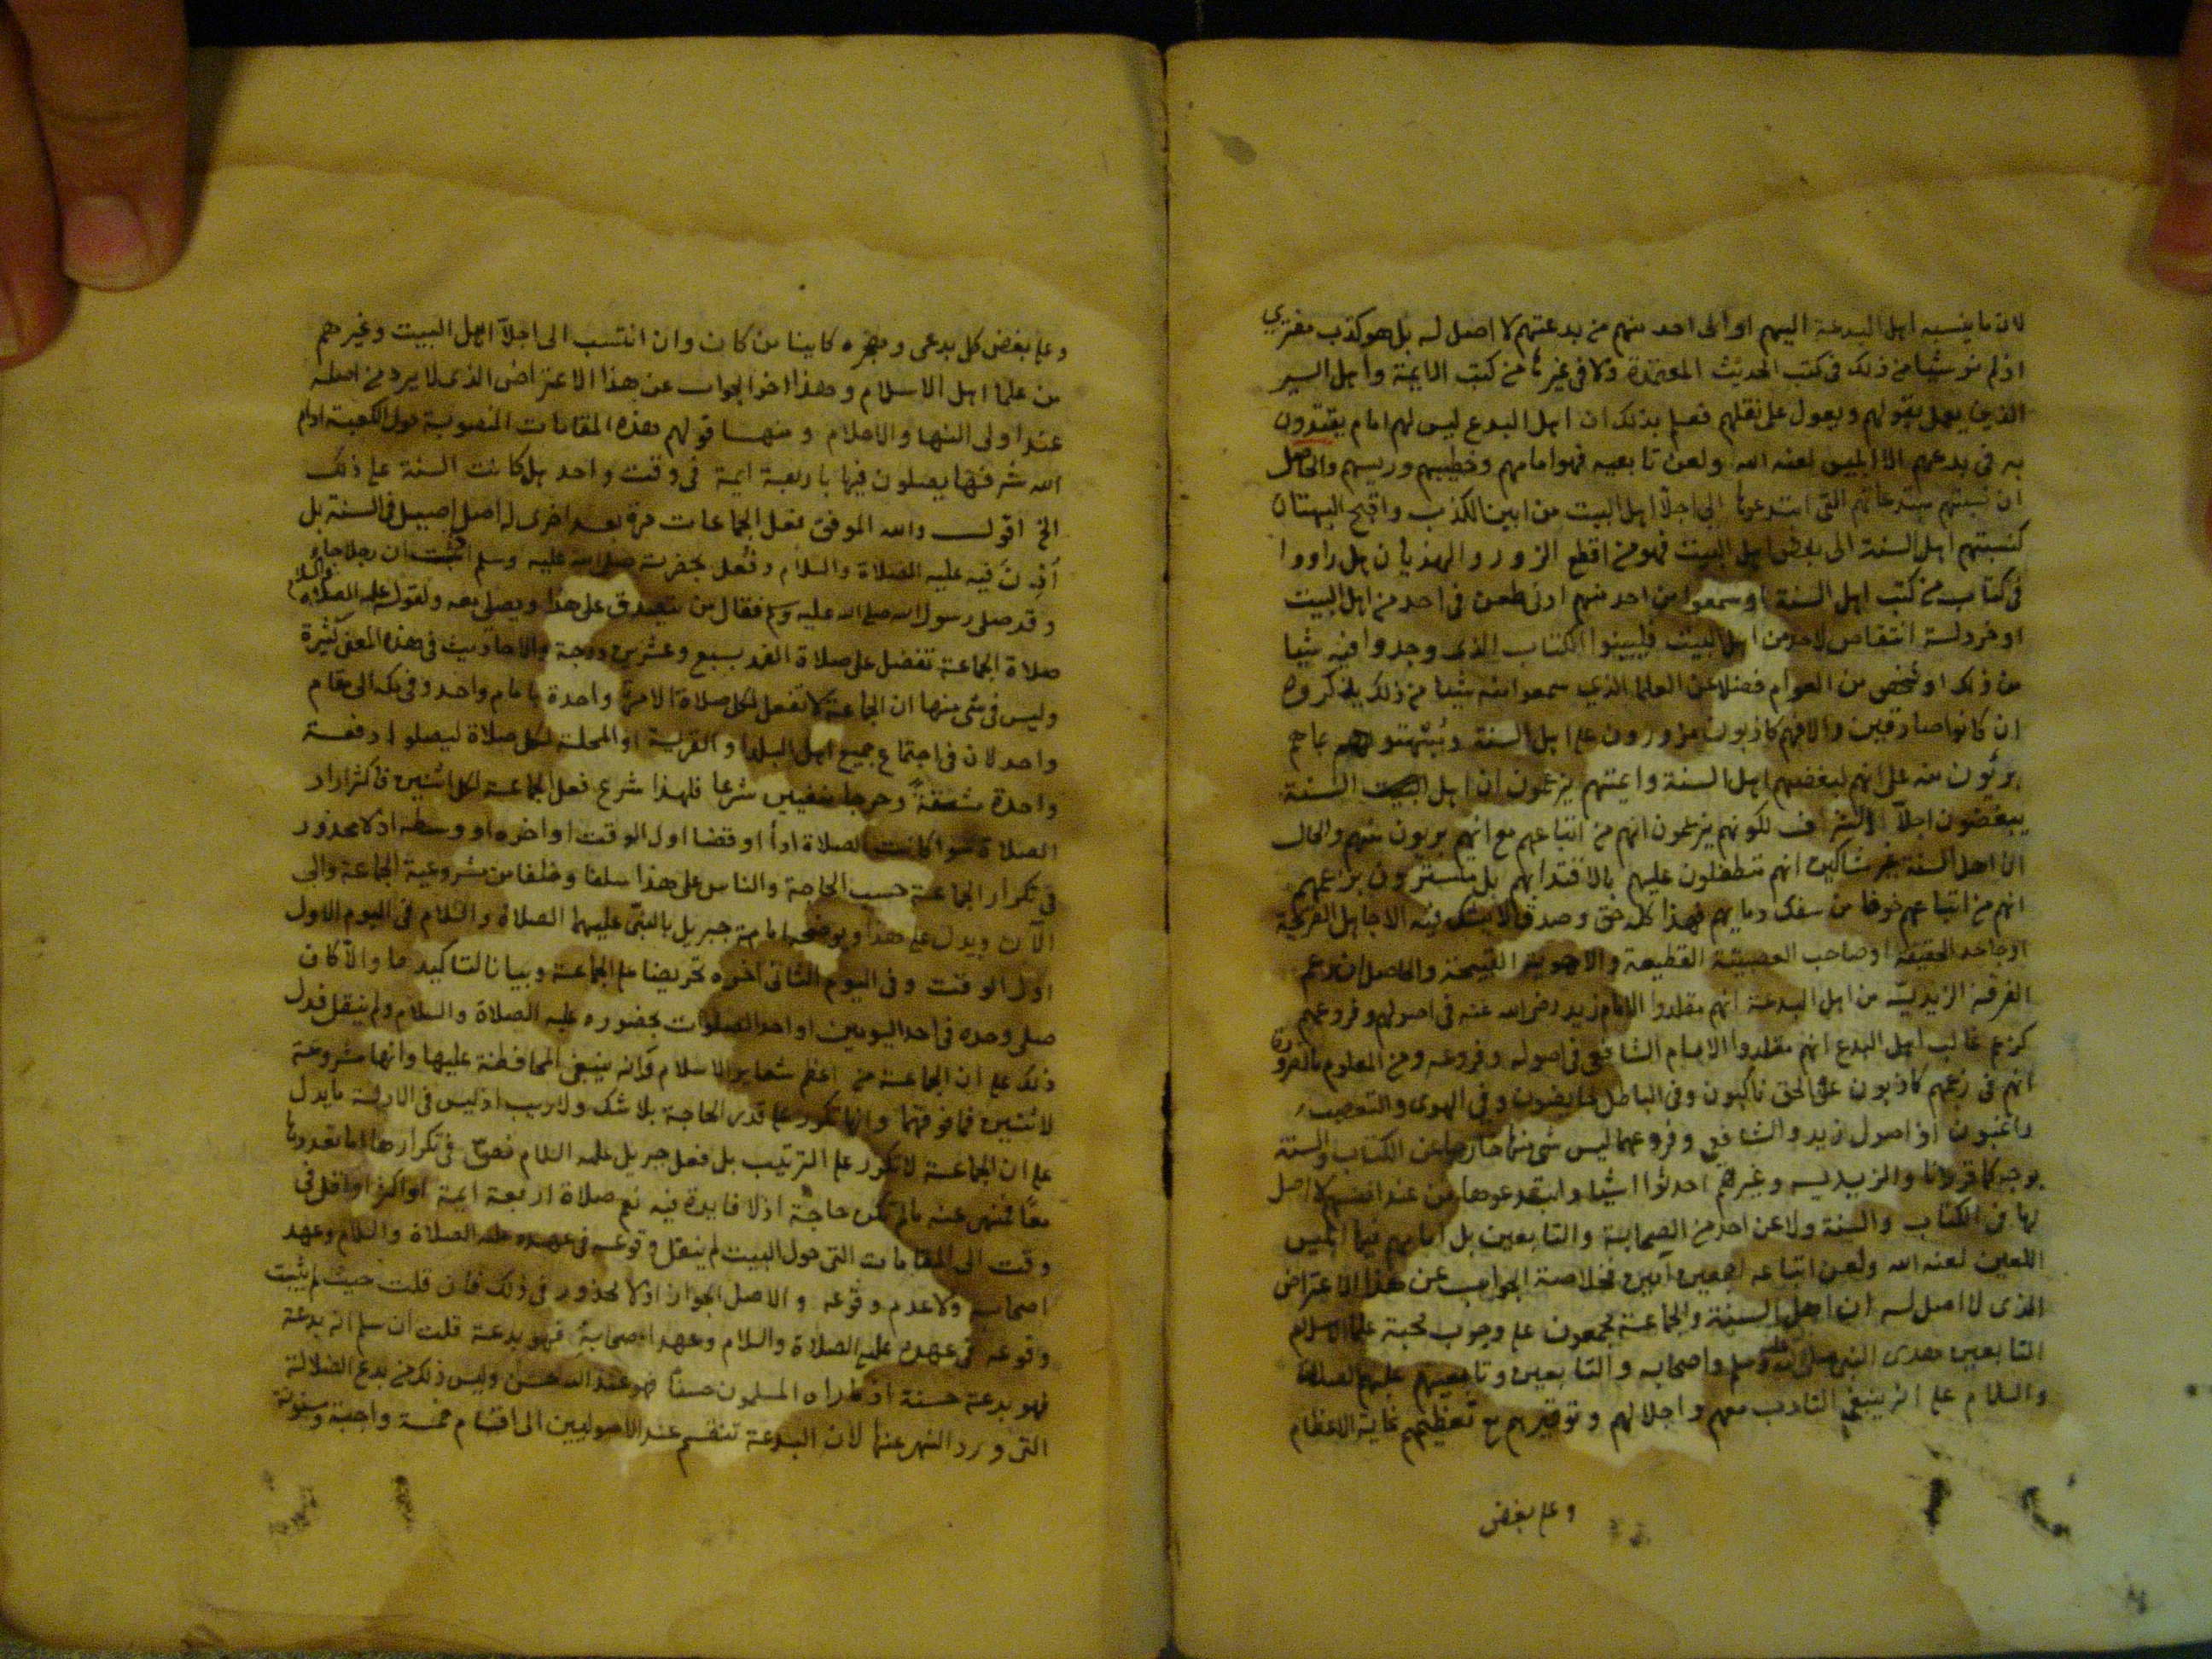 لان ما ينسبه اهل البدعة اليهم او الى احد منهم من بدعتهم لا اصل له بل هو كذب مفتري
اذ لم نر شيئا من ذلك في كتب الحديث المعتمدة ولا في غيرها من كتب الايمة واهل السير
الذين يعمل بقولهم ويعول على نقلهم فعلم بذلك ان اهل البدع ليس لهم امام يقتدون
به في بدعهم الا ابليس لعنه الله ولعن تابعيه فهو امامهم وخطيبهم ورييسهم والحاصل
ان نسبتهم مبتدعاتهم التي ابتدعوها الى اجلآ اهل البيت من ابين الكذب واقبح البهتان
كنسبتهم اهل السنة الى بغض اهل البيت فهو من اقطع الزور والهذيان هل راووا
في كتاب من كتب اهل السنة او سمعوا من احد منهم ادنى طعن في احد من اهل البيت
او خردلة انتقاص لاحد من اهل البيت فليبينوا الكتاب الذي وجدوا فيه شيا
من ذلك او شخص من العوام فضلا عن العلما الذي سمعوا منه شيا من ذلك يذكروه
ان كانوا صادقين والا فهم كاذبون مزورون على اهل السنة ويبهتونهم بما هم
بريون منه على انهم لبغضهم اهل السنة وايمتهم يزعمون ان اهل السنة
يبغضون اجلآ الاشراف لكونهم يزعمون انهم من اتباعهم مع انهم بريون منهم والحال
ان اهل السنة غير شاكين انهم متطفلون عليهم بالاقتدا بهم بل يتسترون بزعمهم
انهم من اتباعهم خوفا من سفك دمايهم فهذا كله حق وصدق لا يشك فيه الا جاهل القريحة
او جاحد الحقيقة او صاحب العصبية القطيعة والاهوية القبيحة والحاصل ان زعم
الفرقة الزيدية من اهل البدعة انهم مقلدوا الامام زيد رضي الله عنه في اصولهم وفروعهم
كزعم غالب اهل البدع انهم مقلدوا الامام الشافعي في اصوله وفروعه ومن المعلوم بالضرورة
انهم في زعمهم كاذبون عن الحق ناكبون وفي الباطل خايضون وفي الهوى والتعصب
راغبون اذ اصول زيد والشافعي وفروعهما ليس شي منها خارجا عن الكتاب والسنة
بوجه كما قررنا والزيدية وغيرهم احدثوا اشيا وابتدعوها من عند انفسهم لا اصل
لها في الكتاب والسنة ولا عن احد من الصحابة والتابعين بل امامهم فيها ابليس
اللعين لعنه الله ولعن اتباعه اجمعين آمين فخلاصة الجواب عن هذا الاعتراض
الذي لا اصل له ان اهل السنة والجماعة مجمعون على وجوب محبة علما الاسلام
التابعين هدى النبي صلى الله عليه وسلم واصحابه والتابعين وتابعيهم عليهم الصلاة
والسلام على انه ينبغي التادب معهم واجلالهم وتوقيرهم مع تعظيمهم غاية الاعظام
وعلى بغض
وعلى بغض كل بدعي وهجره كاينا من كان وان انتسب الى اجلآ اهل البيت وغيرهم
من علما اهل الاسلام وهذا اخر الجواب عن هذا الاعتراض الذي لا يرد من اصله
عند اولى النها والاحلام ومنها قولهم هذه المقامات المنصوبة حول الكعبة ادام
الله شرفها يصلون فيها باربعة ايمة في وقت واحد هل كانت السنة على ذلك
الخ اقول والله الموفق فعل الجماعات مرة بعد اخرى له اصل اصيل في السنة بل
أذن فيه عليه الصلاة والسلام وفعل بحضرته صلى الله عليه وسلم ان رجلا جاء
وقد صلى رسول الله صلى الله عليه وسلم فقال من يتصدق على هذا ويصلي معه ولقوله عليه الصلاة والسلام
صلاة الجماعة تفضل على صلاة الفذ بسبع وعشرين درجة والاحاديث في هذه المعنى كثيرة
وليس في شي منها ان الجماعة لا تفعل لكل صلاة الا مرة واحدة بامام واحد وفي مكه الى مقام
واحد لان في اجتماع جميع اهل البلد او القرية او المحلة لكل صلاة ليصلوا دفعة
واحدة مشقة وحرجا منفيين شرعا فلهذا شرع فعل الجماعة لكل اثنين فاكثر اراد
الصلاة سوا كانت الصلاة ادآ او قضا اول الوقت او اخره او وسطه اذ لا محذور
في تكرار الجماعة حسب الحاجة والناس على هذا سلفا وخلفا من مشروعية الجماعة والى
الآن ويدل على هذا ويوضحه امامة جبريل بالنبي عليهما الصلاة والسلام في اليوم الاول
اول الوقت وفي اليوم الثاني اخره تحريضا على الجماعة وبيانا لتاكيدها والا كان
صلى وحده في احد اليومين او احد الصلوات بحضوره عليه الصلاة والسلام ولم ينقل فدل
ذلك على ان الجماعة من اعظم شعاير الاسلام وانه ينبغي المحافظة عليها وانها مشروعة
لاثنين فما فوقهما وانها تكرر على قدر الحاجة بلا شك ولا ريب اذ ليس في الادلة ما يدل
على ان الجماعة لا تكرر على الترتيب بل فعل جبريل عليه السلام نص في تكرارها اما تعددها
معًا فمنهي عنه ما لم تكن حاجة اذ لا فايدة فيه نعم صلاة اربعة ايمة او اكثر او اقل في
وقت الى المقامات التي حول البيت لم ينقل وقوعه في عهده عليه الصلاة والسلام وعهد
اصحابه ولا عدم وقوعه والاصل الجواز اذ لا محذور في ذلك فان قلت حيث لم يثبت
وقوعه في عهده عليه الصلاة والسلام وعهد اصحابه فهو بدعة قلت ان سلم انه بدعة
فهو بدعة حسنة اذ ما راه المسلمون حسنًا فهو عند الله حسن وليس ذلك من بدع الضلالة
التي ورد النهي عنها لان البدعة تنقسم عند الاصوليين الى اقسام خمسة واجبة